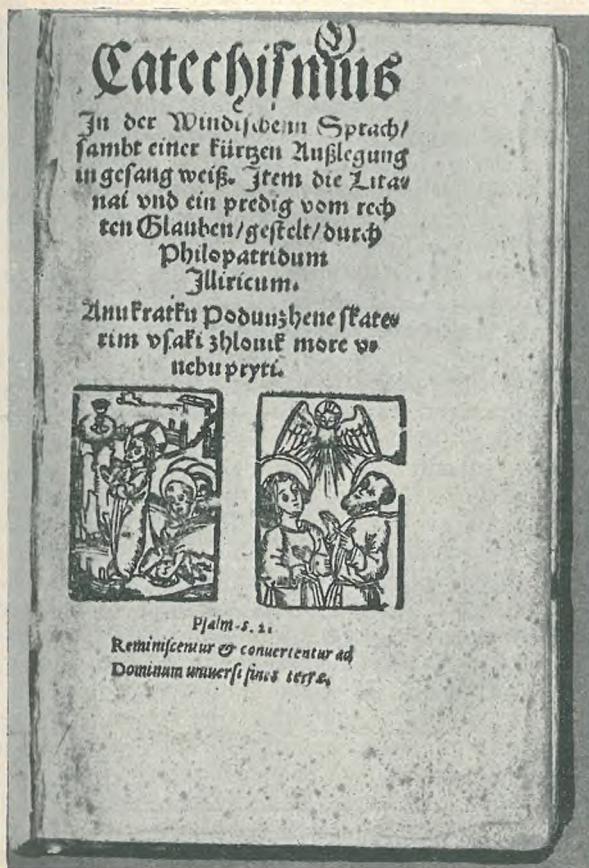 Catechismus
In der Windischenn Sprach/
sambt einer kürtzen Außlegung
in gesang weiß. Item die Lita⸗
nai vnd ein predig vom rech
ten Glauben/gestelt/durch
Philopatridum
Illiricum.
Anu kratku Poduuzhene skate⸗
rim vsaki zhlouik more v⸗
nebu pryti.
Psalm. 2i.
Reminiscentur & conuertentur ad
Dominum uniuersi fines terræ.